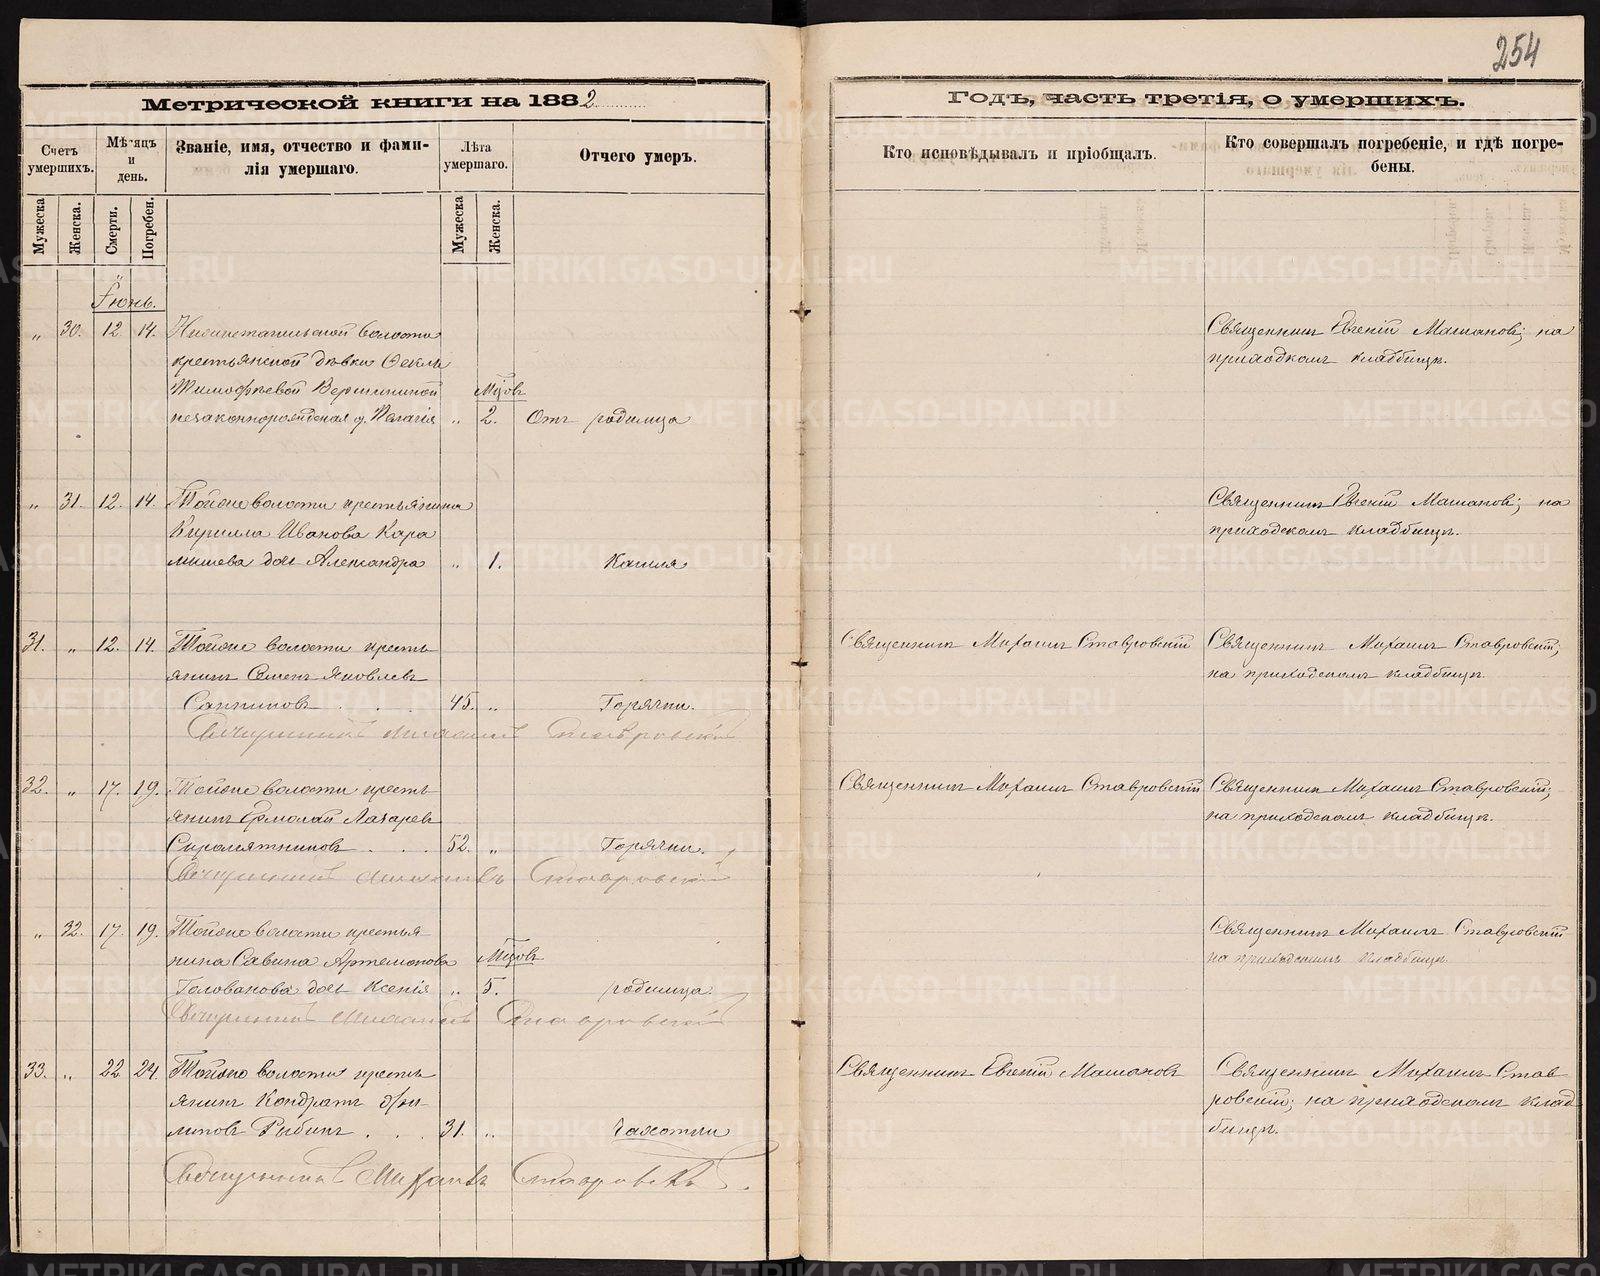 254
Метрической книги на 1882
Годъ, часть третія, о умершихъ.
Счетъ умершихъ.
Мѣсяцъ и день.
Званіе, имя, отчество и фами-
лія умершаго.
Лѣта умершаго.
Отчего умеръ.
Кто исповѣдывалъ и пріобщалъ.
Кто совершалъ погребеніе, и гдѣ погре-
бены.
Мужеска
Женска.
Смерти.
Погребен.
Мужеска
Женска.
Іюнь.
„ 30. 12 14. волости
Священникъ Евгеній Машановъ; на
крестьянской дѣвки Ѳеклы
приходскомъ кладбищѣ.
Тимофѣевой Вершининой Мцовъ
незаконнорожденная д. Пелагія „ 2. Отъ родимца
„ 31. 12. 14. Тойже волости крестьянина
Священникъ Евгеній Машановъ; на
Кирилла Иванова Кара
приходскомъ кладбищѣ.
мышева дочь Александра „ 1. Кашля
31. „ 12. 14. Тойже волости кресть
Священникъ Михаилъ Ставровскій
Священникъ Михаилъ Ставровскій;
янинъ Семенъ Яковлевъ
на приходскомъ кладбищѣ.
Саппиновъ . . . 45. „ Горячки.
Священникъ Михаилъ Ставровскій
32. „ 17. 19. Тойже волости кресть
Священникъ Михаилъ Ставровскій
Священникъ Михаилъ Ставровскій;
янинъ Ермолай Лазаревъ
на приходскомъ кладбищѣ.
Сыромятниковъ . . . 52. „ Горячки.
Священникъ Михаилъ Ставровскій
„ 32. 17. 19. Тойже волости крестья
Священникъ Михаилъ Ставровскій
нина Савина Артемонова Мцовъ
на приходскомъ кладбищѣ.
Голованова дочь Ксенія „ 5. родимца.
Священникъ Михаилъ Ставровскій
33. „ 22 24. Тойже волости кресть
Священникъ Евгеній Машановъ
Священникъ Михаилъ Став-
янинъ Кондратъ Фи-
ровскій; на приходскомъ клад
липовъ Рыбинъ . . . 31. „ Чахотки
бищѣ.
Священникъ Михаилъ Ставровскій.
METRIKI.GASO-URAL.RU